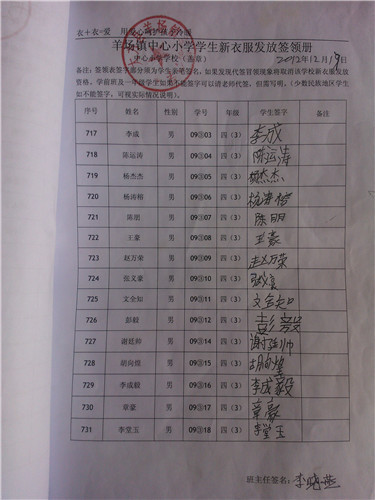 衣+衣=爱 用
羊场镇中心小学学生新衣服发放签领册
中心小学学校（盖章） 2012年12月19日
备注：签领表签字部分须为学生亲笔签名，如果发现代签冒领现象将取消该学校新衣服发放
资格。学前班及一年级学生如果不能签字可以请老师代签，但需写明。（少数民族地区学生
如不能签字，可视实际情况说明）。
序号 姓名 性别 学号 年级 学生签字 备注
717 李成 男 09③03 四（3） 李成
718 陈运涛 男 09③04 四（3） 陈运涛
719 杨杰杰 男 09③05 四（3） 杨杰杰
720 杨涛榕 男 09③06 四（3） 杨涛榕
721 陈朋 男 09③07 四（3） 陈朋
722 王豪 男 09③08 四（3） 王豪
723 赵万荣 男 09③09 四（3） 赵万荣
724 张文豪 男 09③10 四（3）
725 文全知 男 09③11 四（3） 文全知
726 彭毅 男 09③12 四（3） 彭毅
727 谢廷帅 男 09③14 四（3） 谢廷帅
728 胡向煌 男 09③15 四（3） 胡向煌
729 李成毅 男 09③16 四（3） 李成毅
730 章豪 男 09③17 四（3） 章豪
731 李堂玉 男 09③18 四（3） 李堂玉
班主任签名：李晓燕